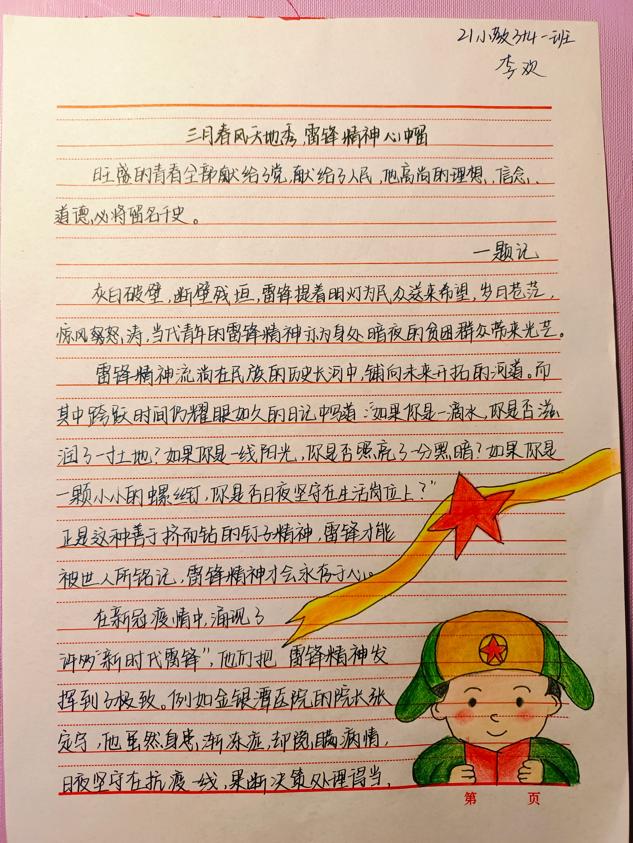 21小教3+4一班
李欢
三月春风天地秀,雷锋精神心中留
旺盛的青春全部献给了党,献给了人民,他高尚的理想、信念、
道德,必将留名于史。
一题记
灰白破壁,断壁残垣,雷锋提着明灯为民众送来希望,岁月苍茫,
惊风怒涛,当代青年的雷锋精神亦为身处暗夜的贫困群众带来光芒。
雷锋精神流淌在民族的历史长河中,铺向未来开拓的河道。而
其中跨跃时间仍耀眼如久的日记中写道:“如果你是一滴水,你是否滋
润了一寸土地?如果你是一线阳光,你是否照亮了一分黑暗?如果你是
一颗小小的螺丝钉,你是否日夜坚守在生活岗位上?”
正是这种善于挤而钻的钉子精神,雷锋才能
被世人所铭记,雷锋精神才会永存于心。
在新冠疫情中,涌现了
许多“新时代雷锋”,他们把 雷锋精神发
挥到了极致。例如金银潭医院的院长张
定宇,他虽然身患渐冻症,却隐瞒病情,
日夜坚守在抗疫一线,果断决策处理得当,
第 页